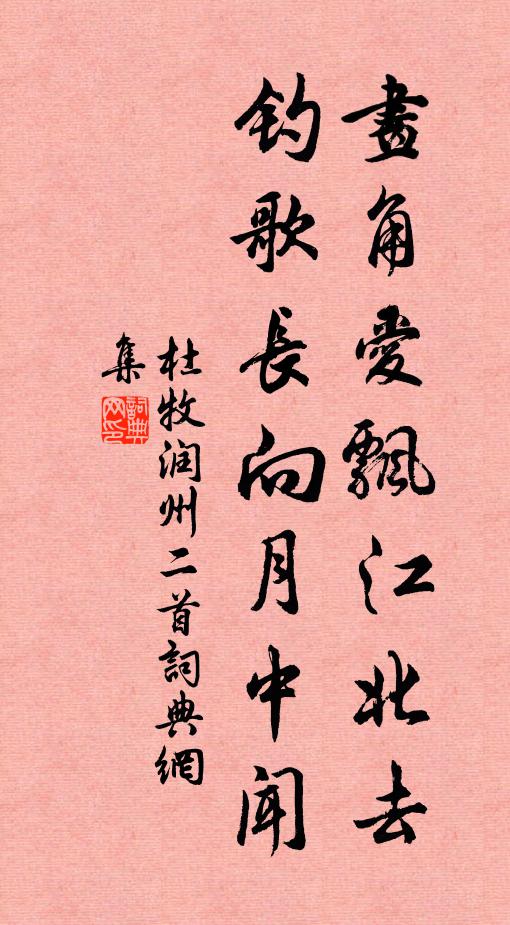 畫角愛飄江北去
釣歌長向月中聞
杜牧润州二首詞典網
集
詞典网印